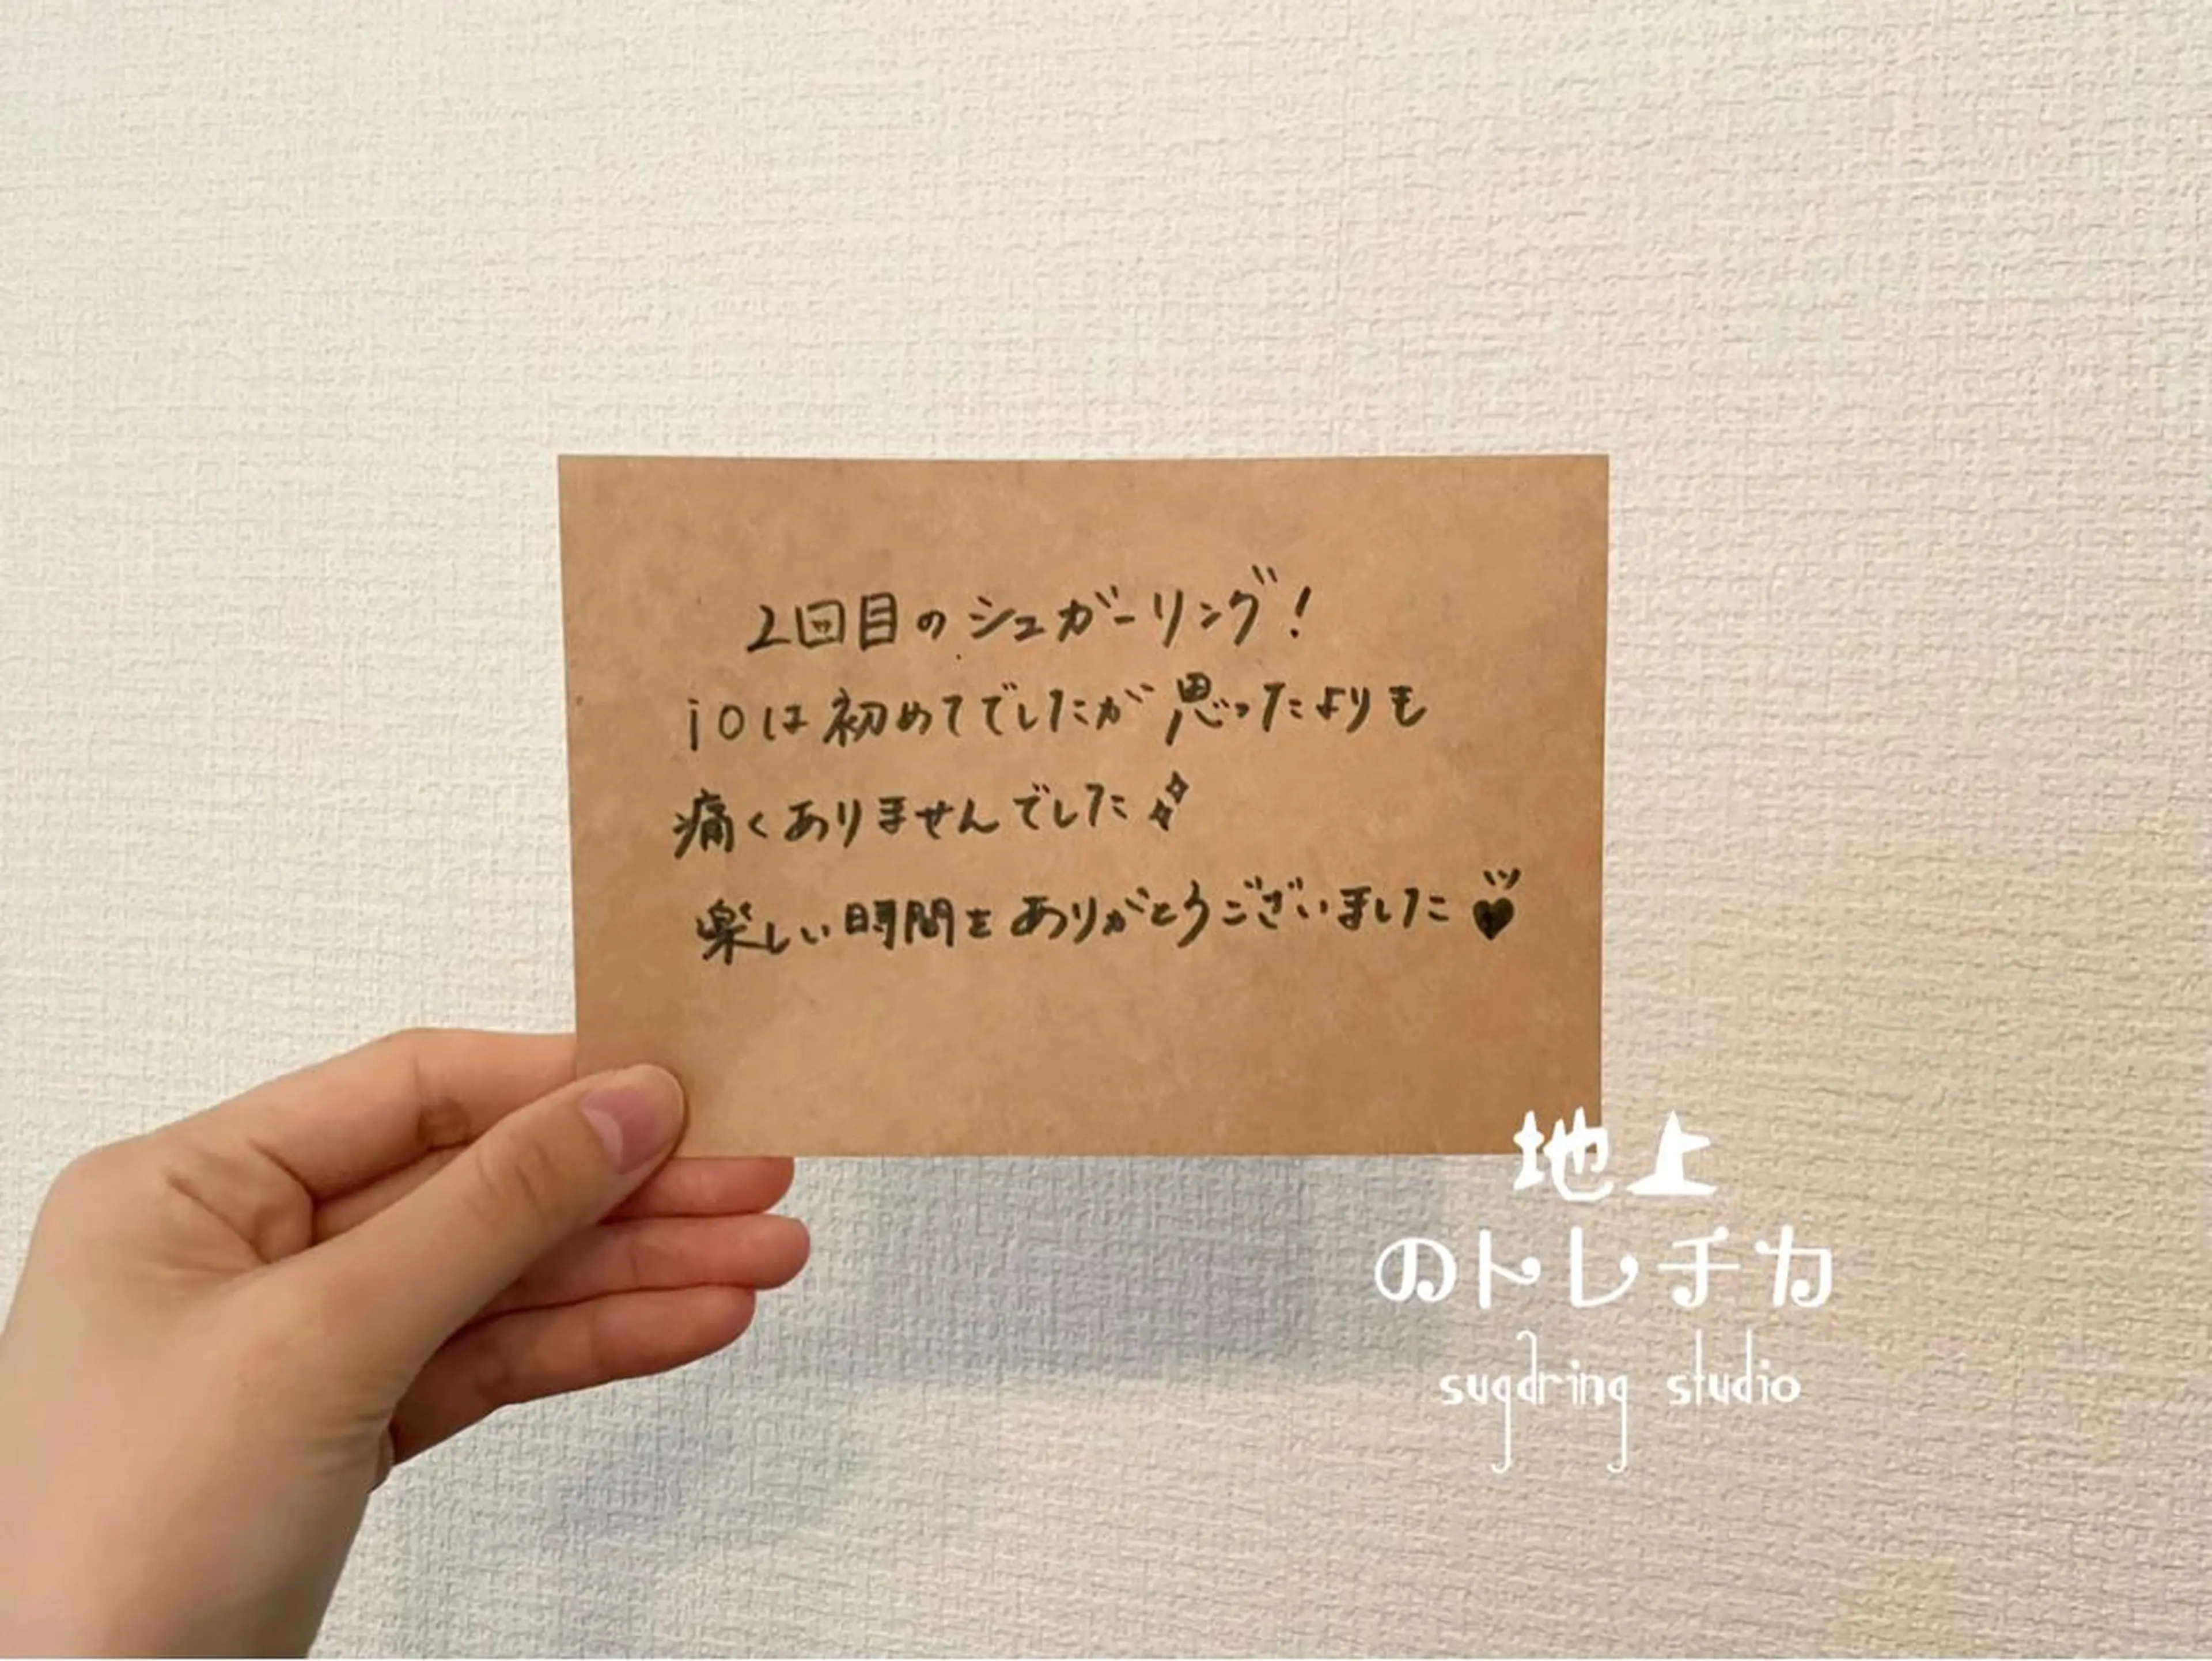 2回目のシュガーリング!
ioは初めてでしたが思ったよりも
痛くありませんでした
楽しい時間をありがとうございました♥
地上
のトレチカ
sugaring studio